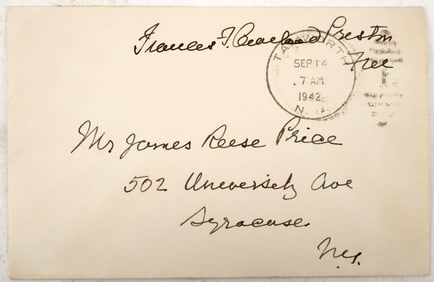 Frances F. Cleveland Preston
Free
TAMWORTH
SEP 14
7 AM
1942
N.H.
Mr James Reese Price
502 University Ave
Syracuse
N.Y.